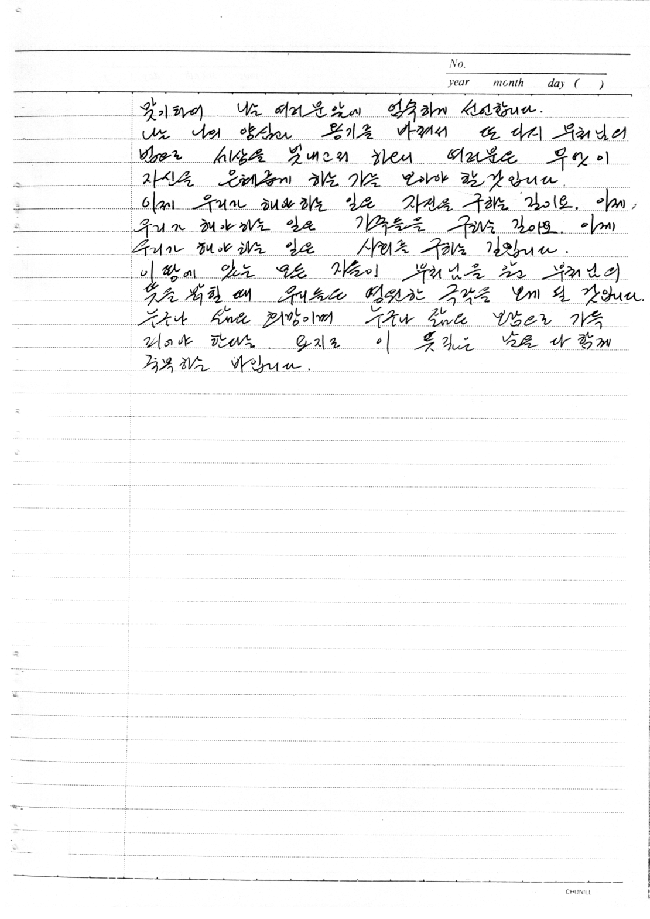 No.
year month day ( )
맞기하여 나는 여러분앞에 엄숙하게 선언합니다.
나는 나의 양심과 용기를 바쳐서 또 다시 부처님의
법으로 세상을 빛내고려 하으니 여러분은 무엇이
자신을 은혜롭게 하는 가를 보아야 할 것입니다.
이제 우리가 해야 하는 일은 자신을 구하는 길이요, 이제
우리가 해야 하는 일은 가족들을 구하는 길이요. 이제
우리가 해야 하는 일은 사회를 구하는 길입니다.
이 땅에 있는 모든 자들이 부처님을 믿고 부처님의
뜻을 밝힐 때 우리들은 영원한 극락을 보게 될 것입니다.
누구나 삶은 희망이며 누구나 삶은 보람으로 가득
되어야 한다는 요지로 이 뜻깊은 날을 다 함께
축복하는 바입니다.